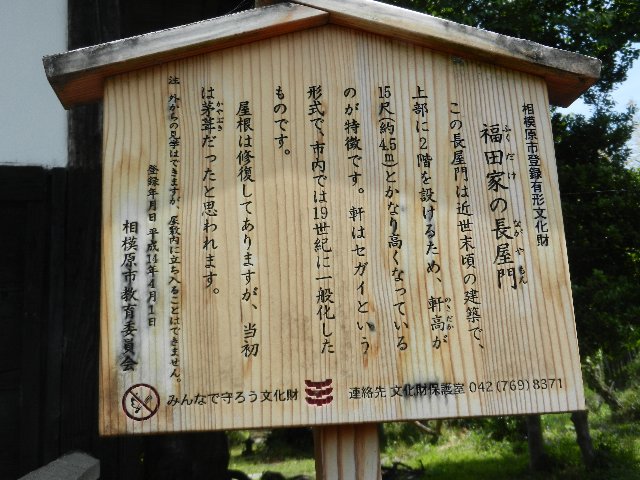 相模原市登録有形文化財
ふくだけ ながやもん
福田家の長屋門
この長屋門は近世末頃の建築で、
上部に2階を設けるため、軒高が
のきだか
15尺(約4.5m)とかなり高くなっている
のが特徴です。軒はセガイという
形式で、市内では19世紀に一般化した
ものです。
屋根は修復してありますが、当初
は茅葺だったと思われます。
かやぶき
注 外からの見学はできますが、屋敷内に立ち入ることはできません。
登録年月日 平成14年4月1日
相模原市教育委員会
みんなで守ろう文化財
連絡先 文化財保護室 042(769)8371